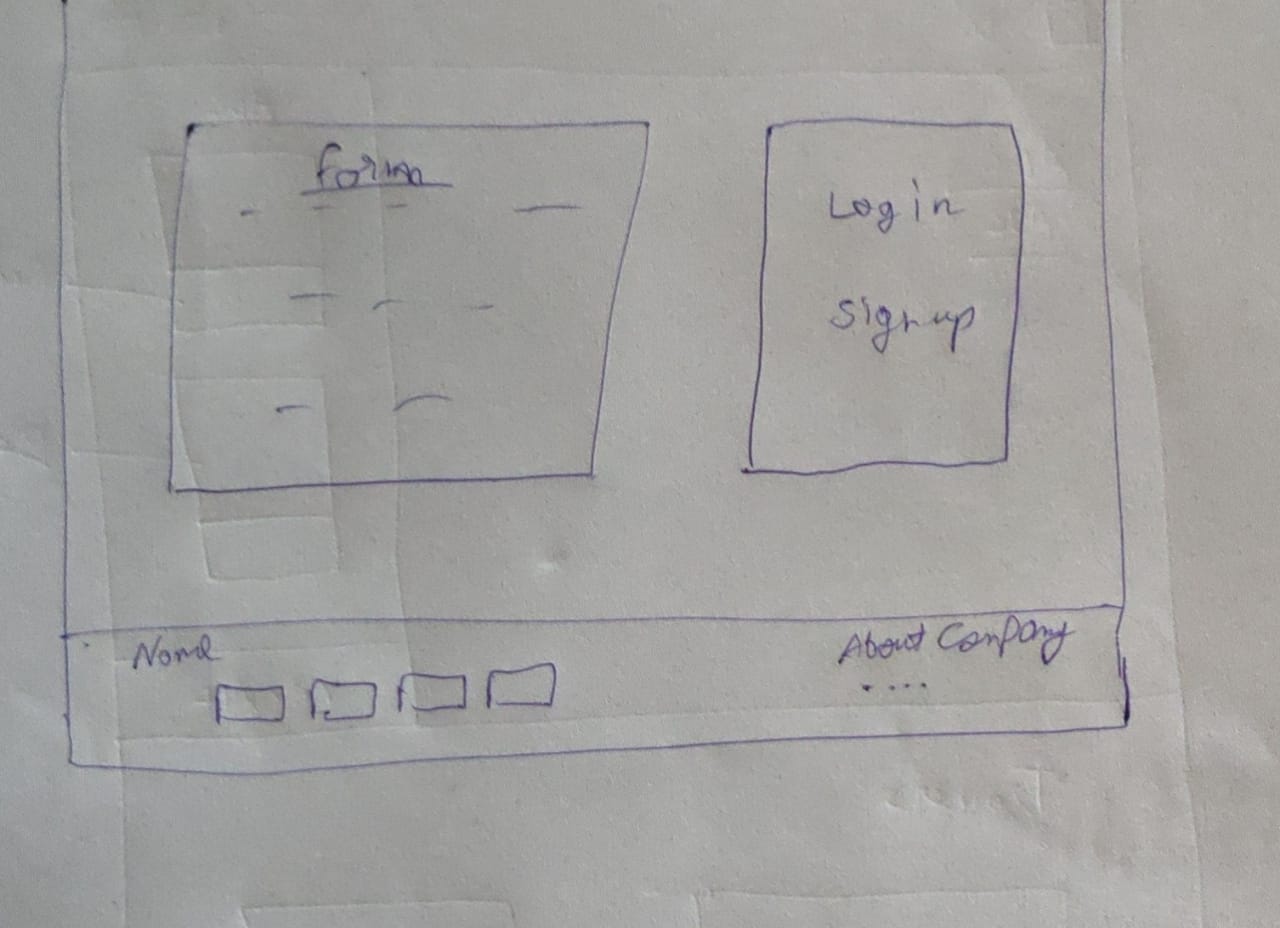 Form
Login
Signup
Name
About Company
....